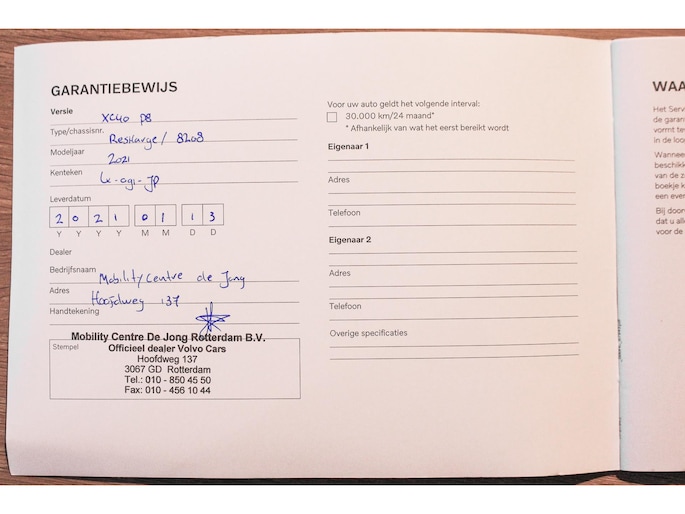 GARANTIEBEWIJS
Versie XC40 P8
Type/chassisnr. Recharge / 8208
Modeljaar 2021
Kenteken
Leverdatum
2 0 2 1 0 1 1 3
Y Y Y Y M M D D
Dealer
Bedrijfsnaam Mobility Centre de Jong
Adres Hoofdweg 137
Handtekening
Mobility Centre De Jong Rotterdam B.V.
Stempel Officieel dealer Volvo Cars
Hoofdweg 137
3067 GD Rotterdam
Tel.: 010 - 850 45 50
Fax: 010 - 456 10 44
Voor uw auto geldt het volgende interval:
30.000 km/24 maand*
* Afhankelijk van wat het eerst bereikt wordt
Eigenaar 1
Adres
Telefoon
Eigenaar 2
Adres
Telefoon
Overige specificaties
WAA
Het Serv
de garan
vormt te
in de loo
Wanneer
beschikk
van de z
boekje k
een ever
Bij door
dat u alle
voor de